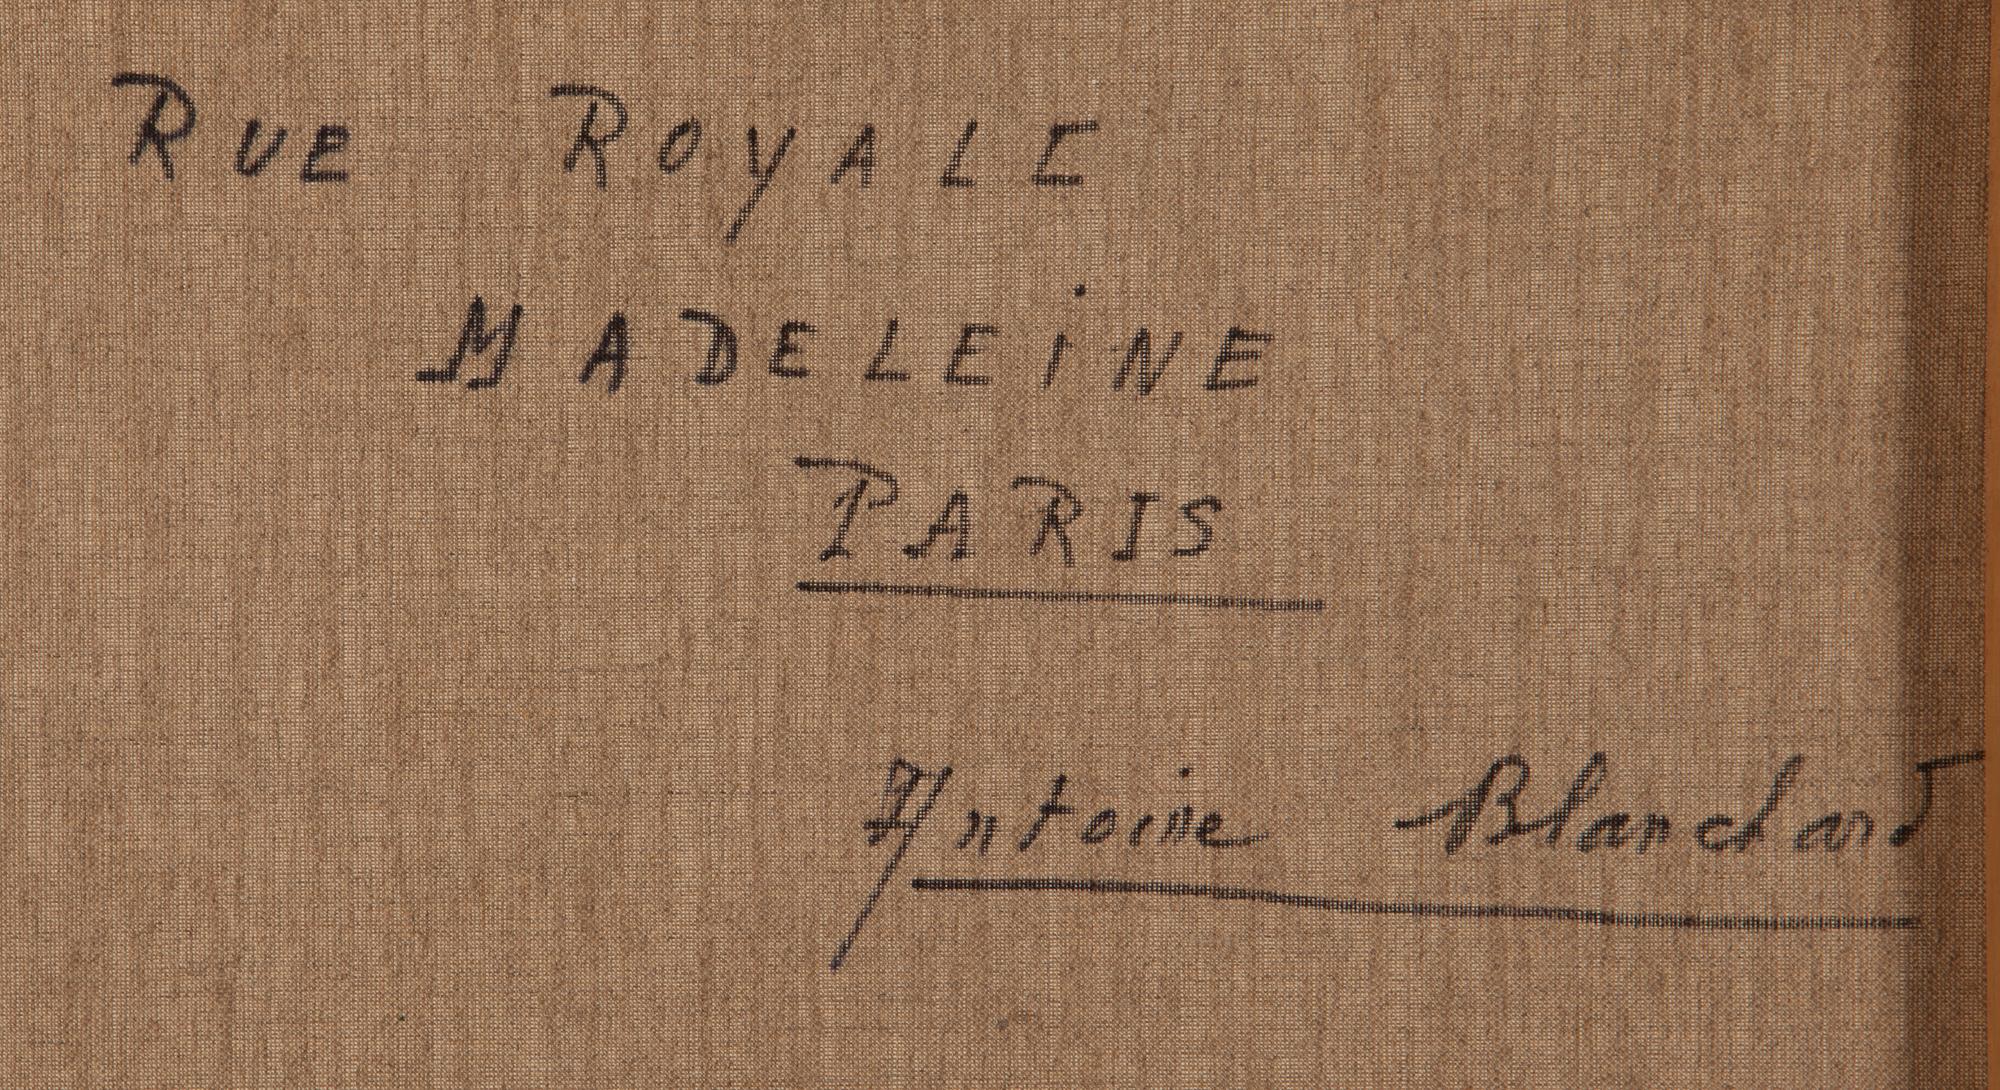 RUE ROYALE
MADELEiNE
PARIS
Antoine Blanchard